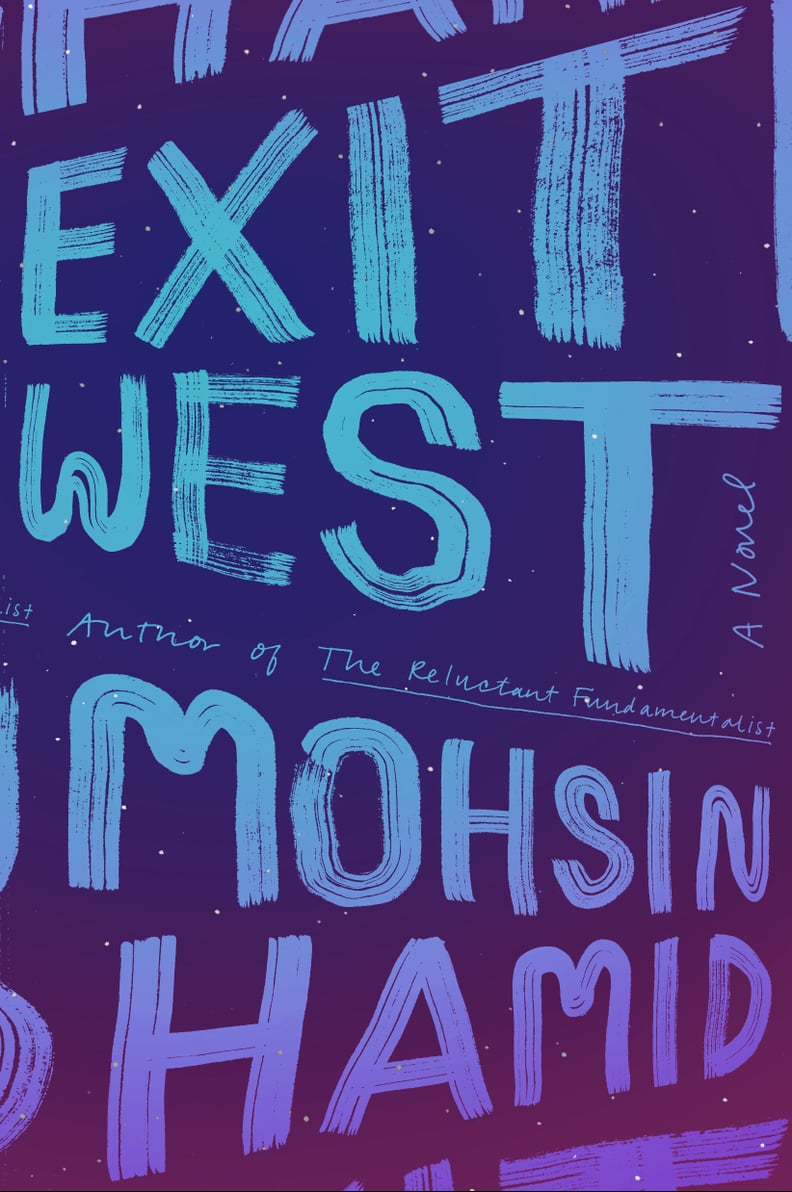 HAM
EXIT
WEST
A Novel
list
Author of The Reluctant Fundamentalist
MOHSIN
HAMID